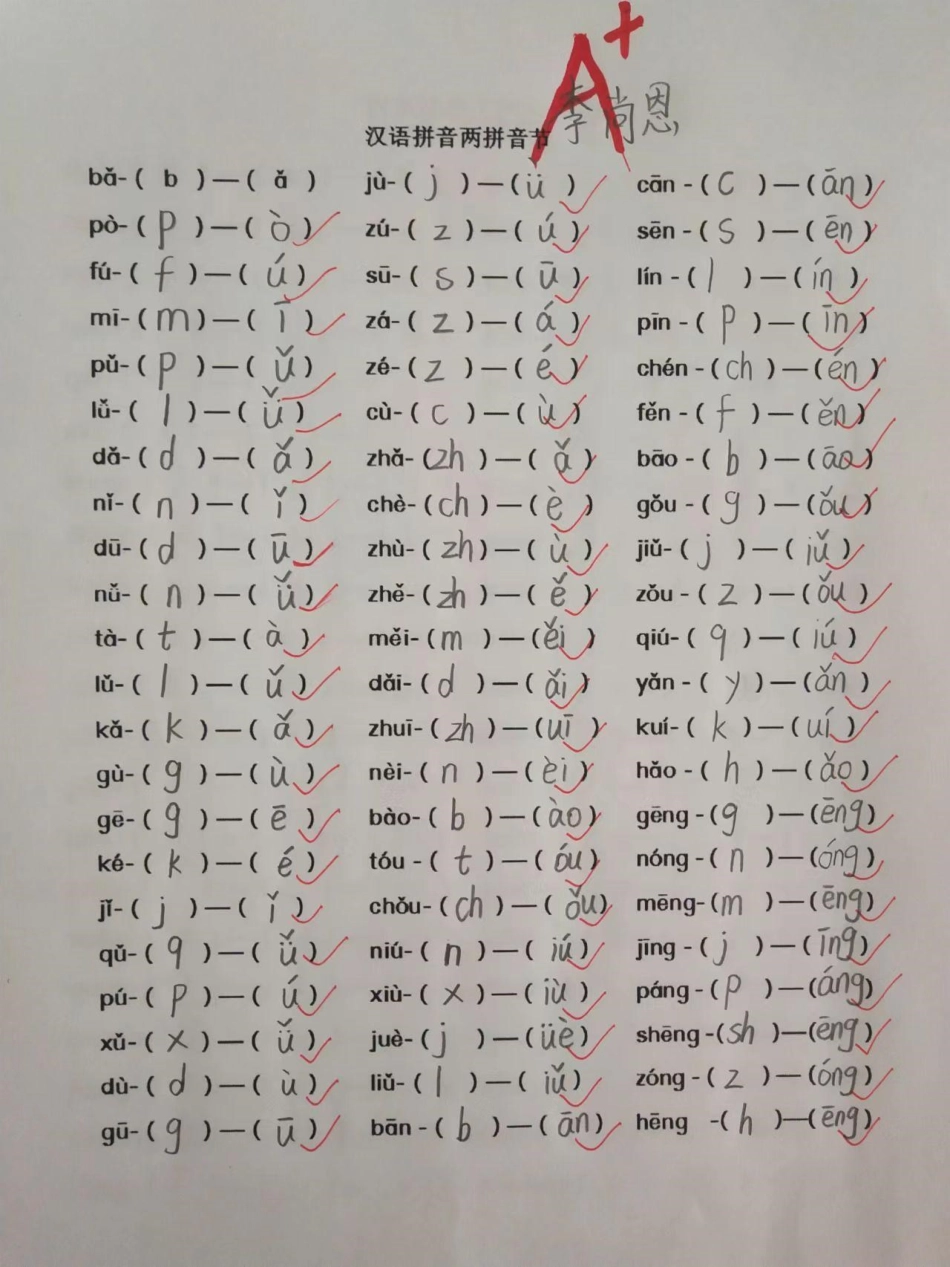 A+
李尚恩
汉语拼音两拼音节
bǎ-( b )—( ǎ ) jù-( j )—( ǜ ) cān -( c )—( ān )
pò-( p )—( ò ) zú-( z )—( ú ) sēn -( s )—( ēn )
fú-( f )—( ú ) sū-( s )—( ū ) lín -( l )—( ín )
mī-( m )—( ī ) zá-( z )—( á ) pīn -( p )—( īn )
pǔ-( p )—( ǔ ) zé-( z )—( é ) chén -( ch )—( én )
lǚ-( l )—( ǚ ) cù-( c )—( ù ) fěn -( f )—( ěn )
dǎ-( d )—( ǎ ) zhǎ-( zh )—( ǎ ) bāo -( b )—( āo )
nǐ-( n )—( ǐ ) chè-( ch )—( è ) gǒu -( g )—( ǒu )
dū-( d )—( ū ) zhù-( zh )—( ù ) jiǔ-( j )—( iǔ )
nǚ-( n )—( ǚ ) zhě-( zh )—( ě ) zǒu -( z )—( ǒu )
tà-( t )—( à ) měi-( m )—( ěi ) qiú-( q )—( iú )
lǔ-( l )—( ǔ ) dǎi-( d )—( ǎi ) yǎn -( y )—( ǎn )
kǎ-( k )—( ǎ ) zhuī-( zh )—( uī ) kuí-( k )—( uí )
gù-( g )—( ù ) nèi-( n )—( èi ) hǎo -( h )—( ǎo )
gē-( g )—( ē ) bào-( b )—( ào ) gēng -( g )—( ēng )
ké-( k )—( é ) tóu -( t )—( óu ) nóng -( n )—( óng )
jǐ-( j )—( ǐ ) chǒu-( ch )—( ǒu ) mēng-( m )—( ēng )
qǔ-( q )—( ǚ ) niú-( n )—( iú ) jīng -( j )—( īng )
pú-( p )—( ú ) xiù-( x )—( iù ) páng -( p )—( áng )
xǔ-( x )—( ǚ ) juè-( j )—( üè ) shēng -( sh )—( ēng )
dù-( d )—( ù ) liǔ-( l )—( iǔ ) zóng -( z )—( óng )
gū-( g )—( ū ) bān -( b )—( ān ) hēng -( h )—( ēng )